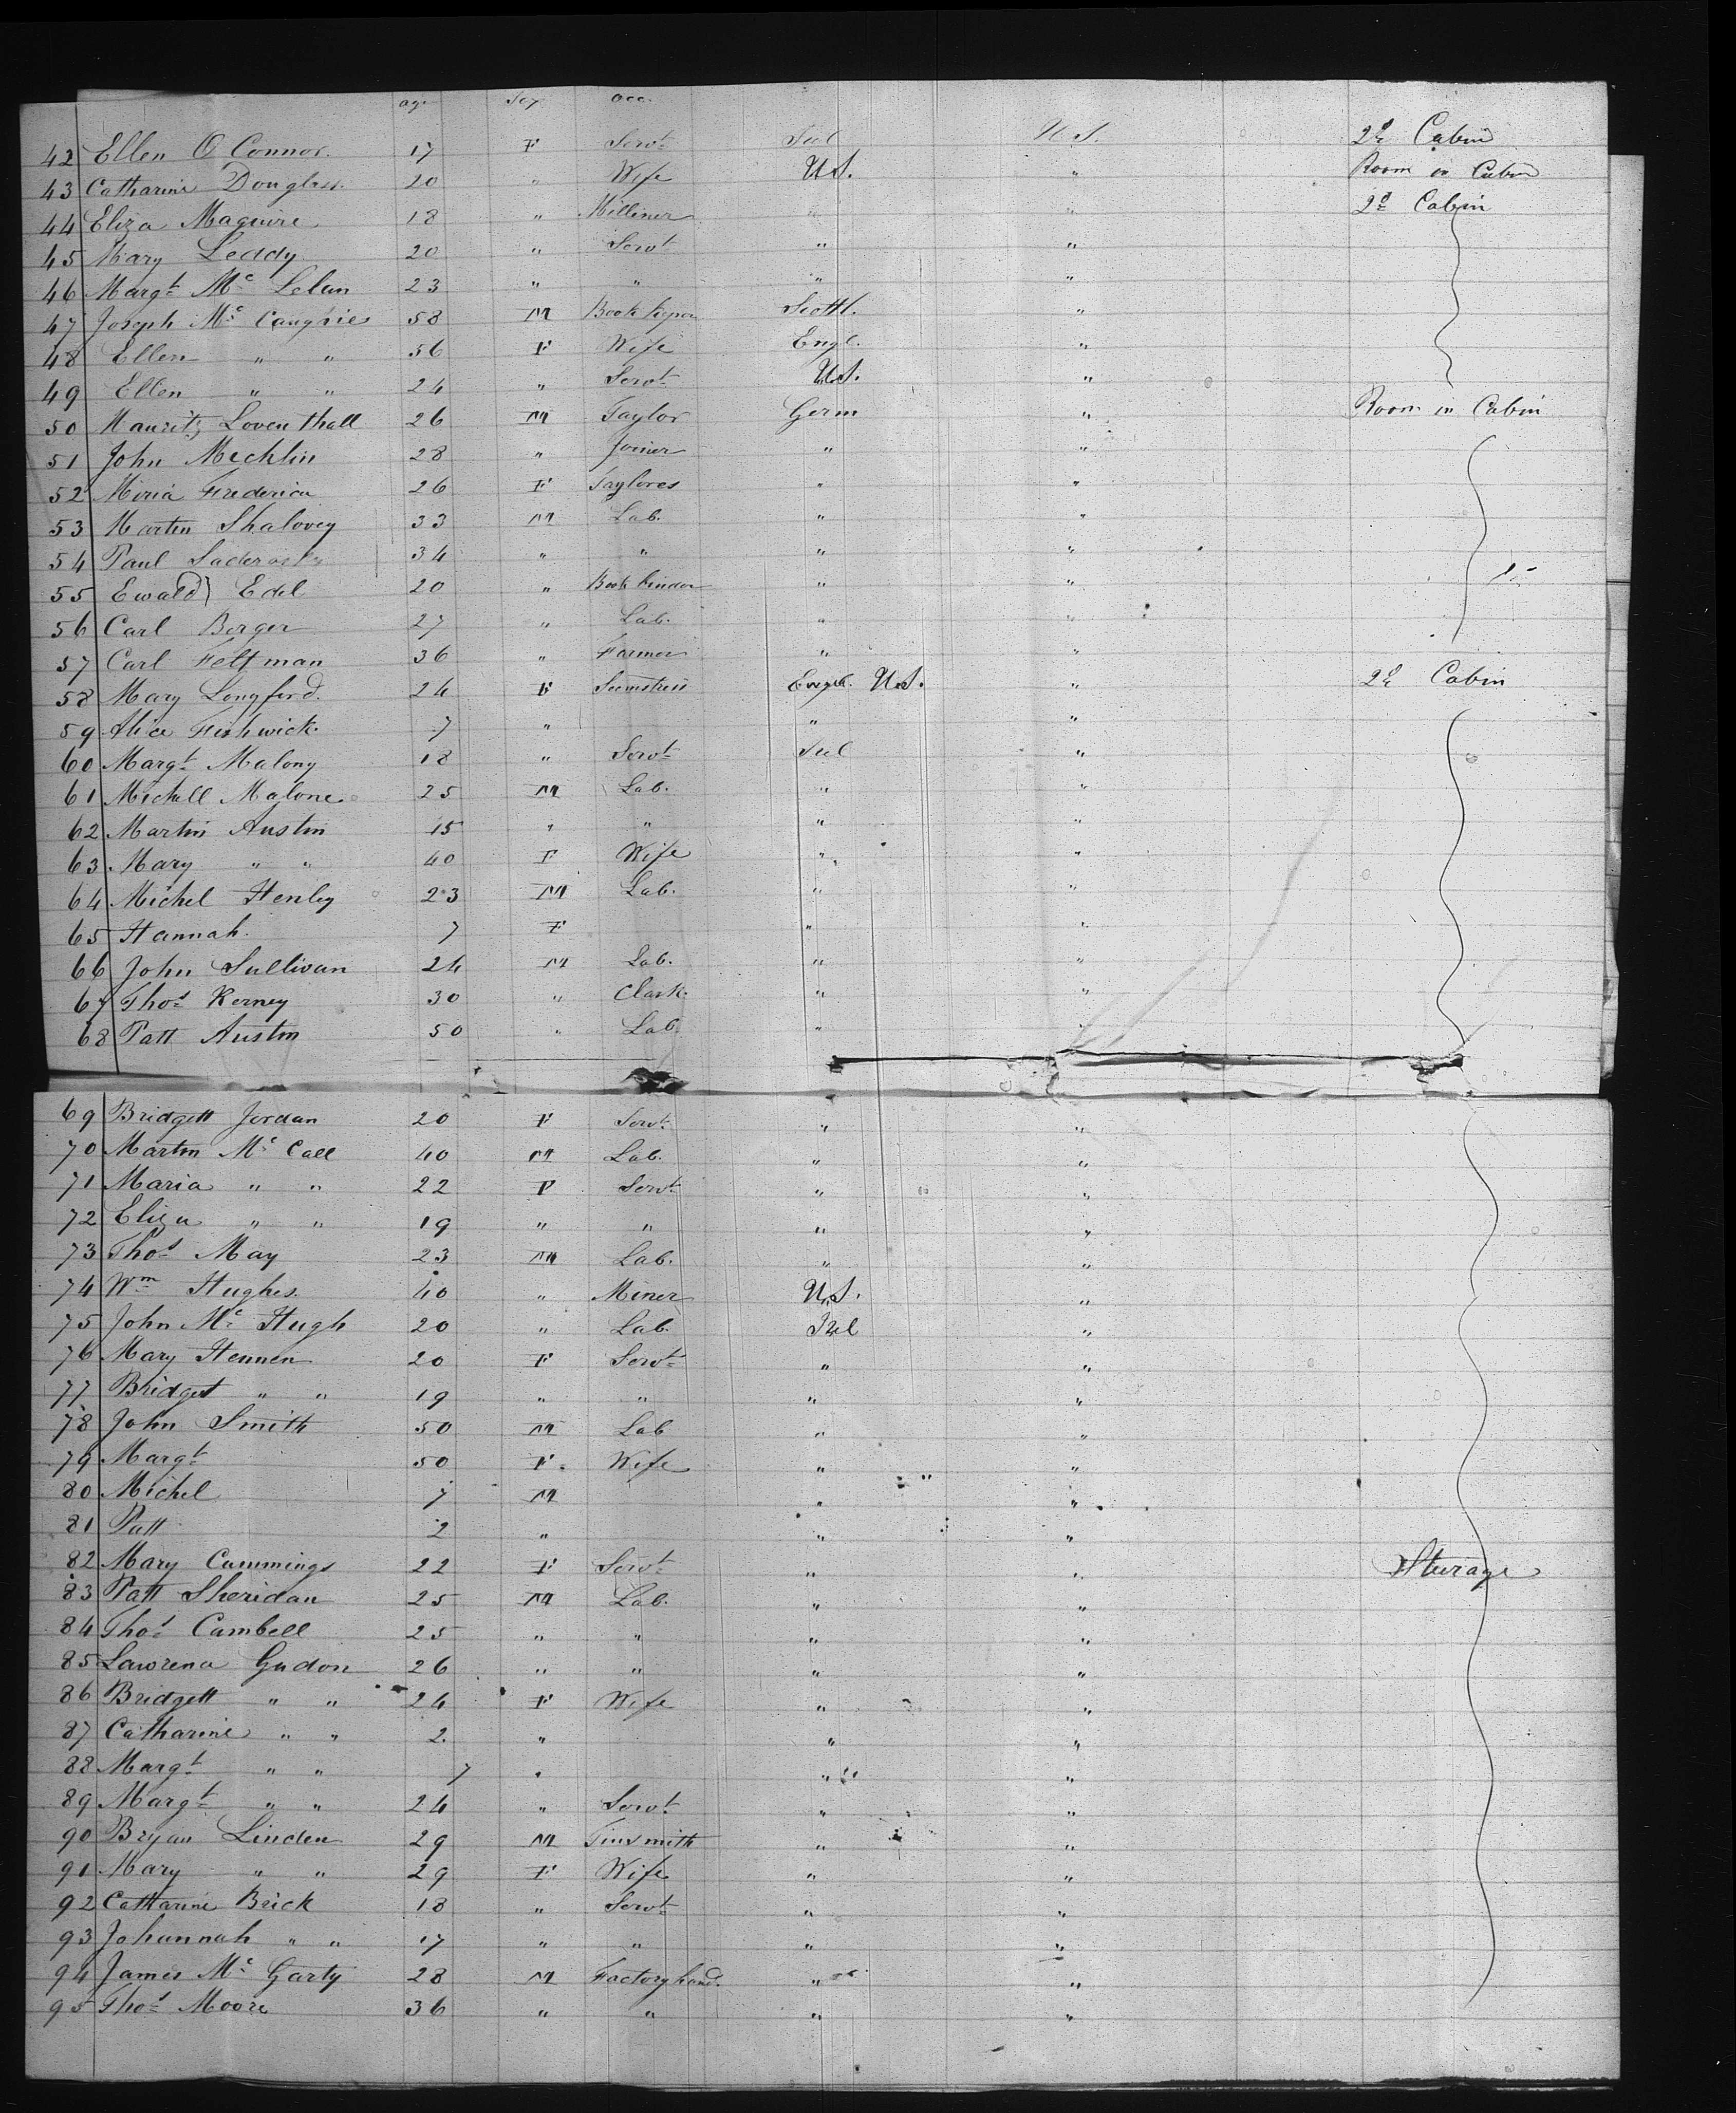 age Sex occ.
42 Ellen O Connor. 17 F Servt Irel U.S. 2d Cabin
43 Catharine Douglass. 20 " Wife U.S. " Room in Cabin
44 Eliza Maguire 18 " Milliner " " 2d Cabin
45 Mary Leddy 20 " Servt " "
46 Margt Mc 23 " " " "
47 Joseph Mc Caughie 58 M Book keeper Scottl. "
48 Ellen " " 56 F Wife Engl. "
49 Ellen " " 24 " Servt U.S. "
50 Mauritz Loventhall 26 M Taylor Germ " Room in Cabin
51 John Mecklin 28 " Joiner " "
52 Miria Frederica 26 F Taylores " "
53 Martin Shalovey 33 M Lab. " "
54 Paul 34 " " " "
55 Ewald Edel 20 " Book binder " "
56 Carl Berger 27 " Lab. " "
57 Carl Feltman 36 " Farmer " "
58 Mary Longford. 24 F Seemstress Engl. U.S. " 2d Cabin
59 Alice Fishwick. 7 " " "
60 Margt Malony 18 " Servt Irel "
61 Michell Malone 25 M Lab. " "
62 Martin Austin 15 " " " "
63 Mary " " 40 F Wife " "
64 Michel Henley 23 M Lab. " "
65 Hannah. 7 F " "
66 John Sullivan 24 M Lab. " "
67 Thos Kerney 30 " Clark. " "
68 Patt Austin 50 " Lab. " "
69 Bridgett Jordan 20 F Servt " "
70 Martin Mc Call 40 M Lab. " "
71 Maria " " 22 F Servt " "
72 Eliza " " 19 " " " "
73 Thos May 23 M Lab. " "
74 Wm Hughes. 40 " Miner U.S. "
75 John Mc Hugh 20 " Lab. Irel "
76 Mary Hennen 20 F Servt " "
77 Bridget " " 19 " " " "
78 John Smith 50 M Lab " "
79 Margt 50 F. Wife " "
80 Michel 7 M " "
81 Patt 2 " " "
82 Mary Cummings 22 F Servt " " Sturage
83 Patt Sheridan 25 M Lab. " "
84 Thos Cambell 25 " " " "
85 Lawrence 26 " " " "
86 Bridgett " " 24 F Wife " "
87 Catharine " " 2. " " "
88 Margt " " 7 " " "
89 Margt " " 24 " Servt " "
90 Bryan Linden 29 M Tinsmith " "
91 Mary " " 29 F Wife " "
92 Catharine Brick 18 " Servt " "
93 Johannah " " 17 " " " "
94 James Mc Garty 28 M Factory hand. " "
95 Thos Moore 36 " " " "